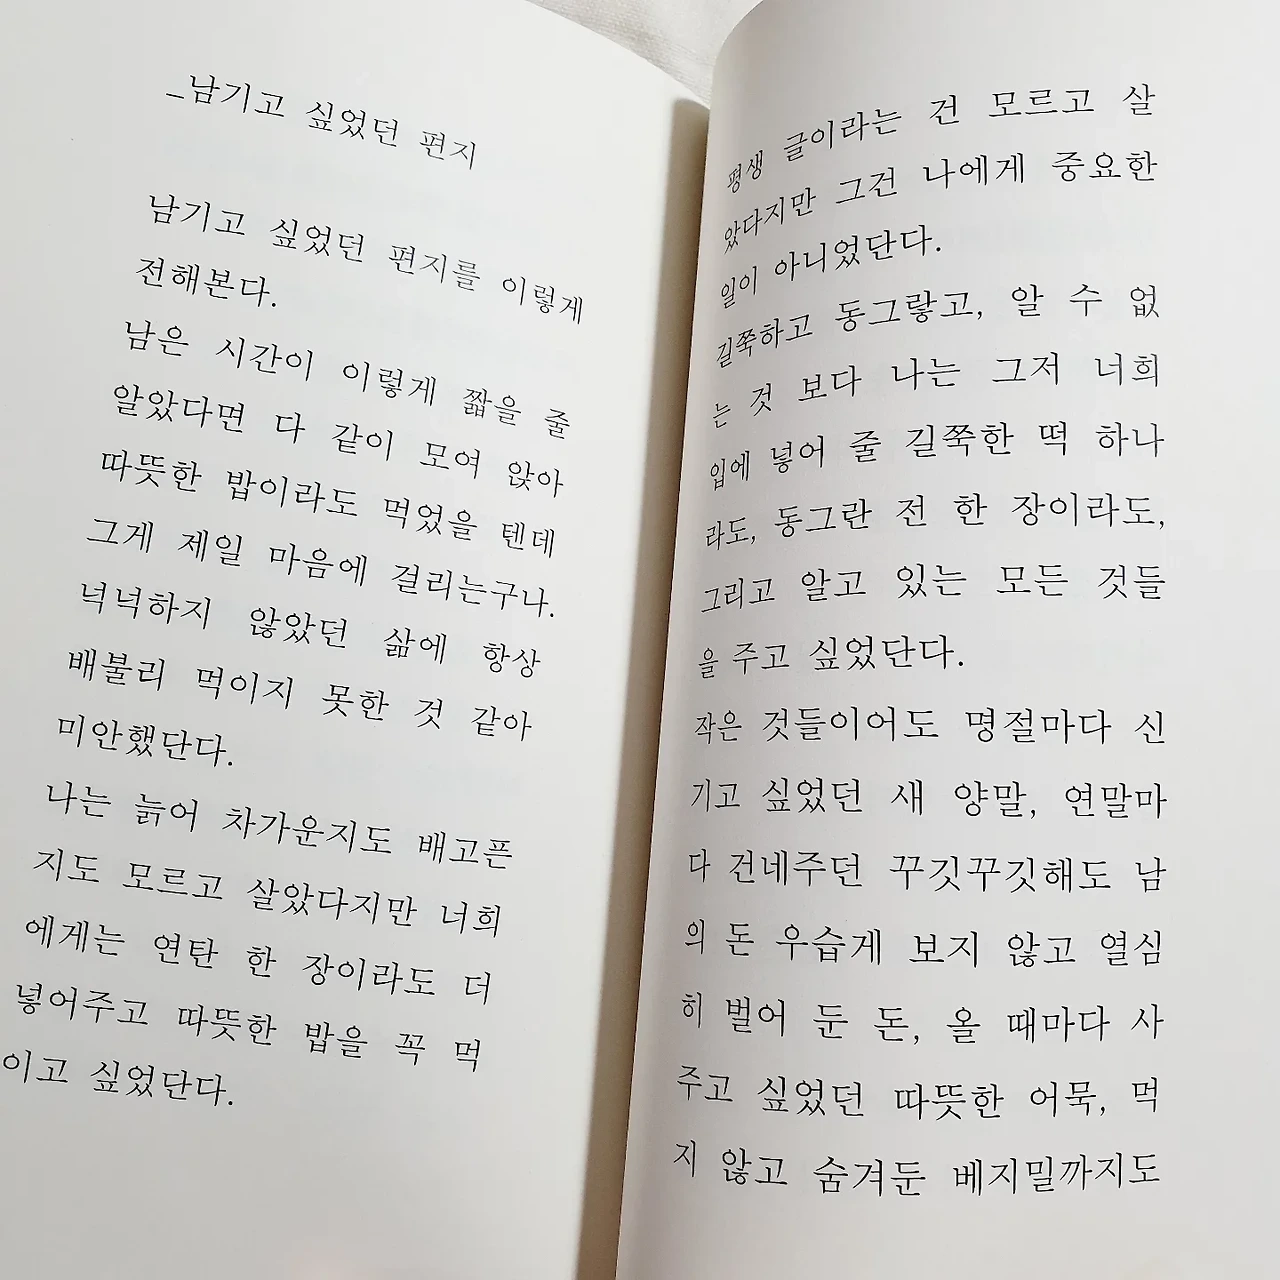 _남기고 싶었던 편지
남기고 싶었던 편지를 이렇게
전해본다.
남은 시간이 이렇게 짧을 줄
알았다면 다 같이 모여 앉아
따뜻한 밥이라도 먹었을 텐데
그게 제일 마음에 걸리는구나.
넉넉하지 않았던 삶에 항상
배불리 먹이지 못한 것 같아
미안했단다.
나는 늙어 차가운지도 배고픈
지도 모르고 살았다지만 너희
에게는 연탄 한 장이라도 더
넣어주고 따뜻한 밥을 꼭 먹
이고 싶었단다.
평생 글이라는 건 모르고 살
았다지만 그건 나에게 중요한
일이 아니었단다.
길쭉하고 동그랗고, 알 수 없
는 것 보다 나는 그저 너희
입에 넣어 줄 길쭉한 떡 하나
라도, 동그란 전 한 장이라도,
그리고 알고 있는 모든 것들
을 주고 싶었단다.
작은 것들이어도 명절마다 신
기고 싶었던 새 양말, 연말마
다 건네주던 꾸깃꾸깃해도 남
의 돈 우습게 보지 않고 열심
히 벌어 둔 돈, 올 때마다 사
주고 싶었던 따뜻한 어묵, 먹
지 않고 숨겨둔 베지밀까지도